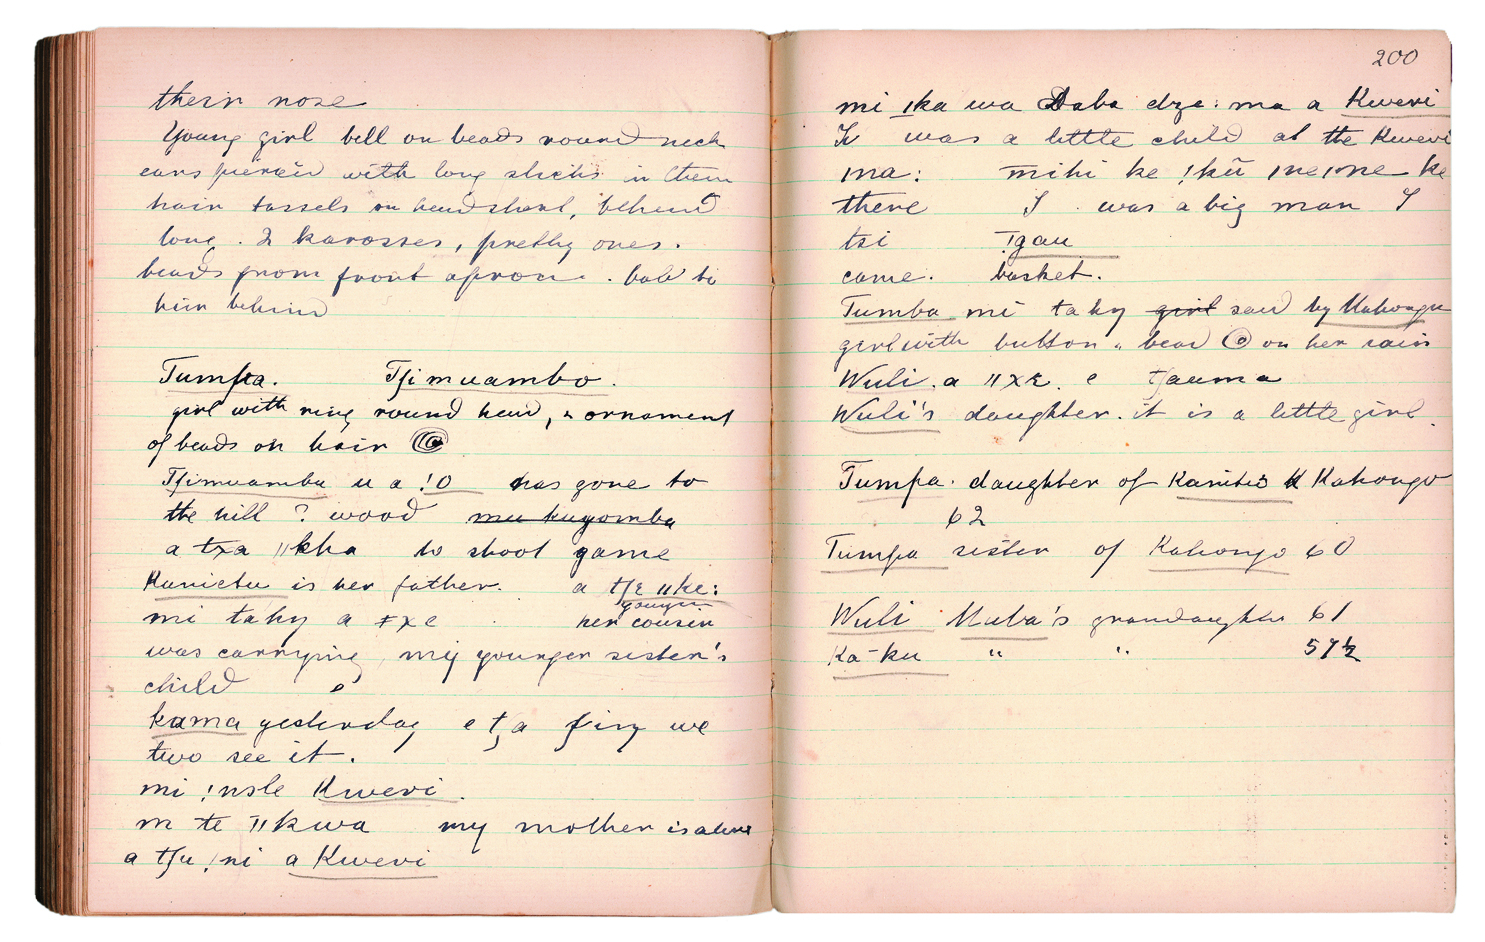 their nose
Young girl bell on beads round neck
ears pierced with long sticks in them
hair tassels on head short, behind
long. 2 karosses, pretty ones.
beads from front apron.
hair behind
Tumpa. Tʃimuambo.
girl with ring round head, & ornament
of beads on hair
Tʃimuambu u a !o has gone to
the hill ? wood mu kuyomba
a txa ǁkha to shoot game
Kanictu is her father. a tʃɛ ǁke:
younger
mi taky a ǂxe her cousin
was carrying my younger sister's
child e
kama yesterday e ta we
two see it.
mi !nsle Kwevi.
m te ǁkwa my mother is alive
a tʃu !ni a Kwevi
200
mi ǀka wa Daba dze: ma a Kwevi
I was a little child at the Kwevi
ǀna: mihi ke !kũ ǀneǀne ke
there I was a big man I
tsi !gau
came. basket.
Tumba mi taky girl said by Kahongu
girl with button " bead on her
Wuli. a ǁxɛ. e tʃauma
Wuli's daughter. it is a little girl.
Tumpa. daughter of Kanitu's Kahongo
62
Tumpa sister of Kahongo 60
Wuli Muba's grandaughter 61
Ka-ku " " 57½